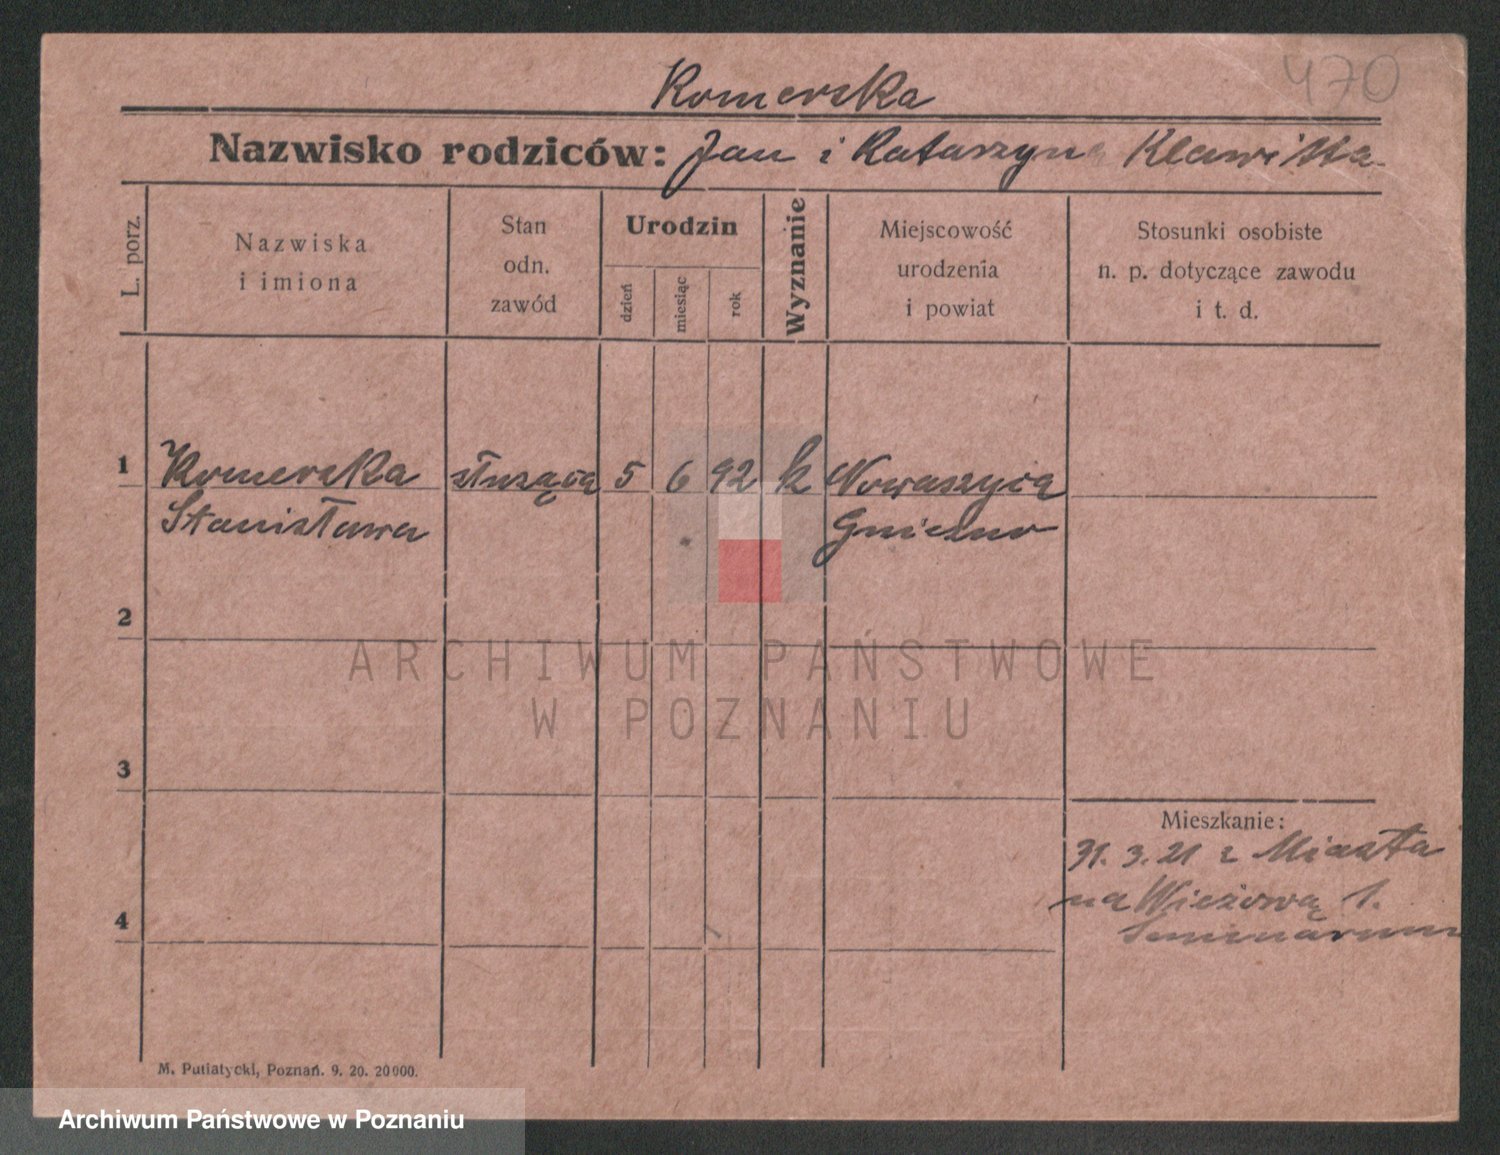 470
Komerska
Nazwisko rodziców: Jan i Katarzyna
L. porz.
Nazwiska
i imiona
Stan
odn.
zawód
Urodzin
dzień
miesiąc
rok
Wyznanie
Miejscowość
urodzenia
i powiat
Stosunki osobiste
n. p. dotyczące zawodu
i t. d.
1 Komerska służąca 5 6 92 k
Stanisława Gniezno
2
3
4
Mieszkanie:
31. 3. 21 z Miasta
na Wieżową 1.
Seminarium
M. Putiatycki, Poznań. 9. 20. 20000.
ARCHIWUM PAŃSTWOWE
W POZNANIU
Archiwum Państwowe w Poznaniu